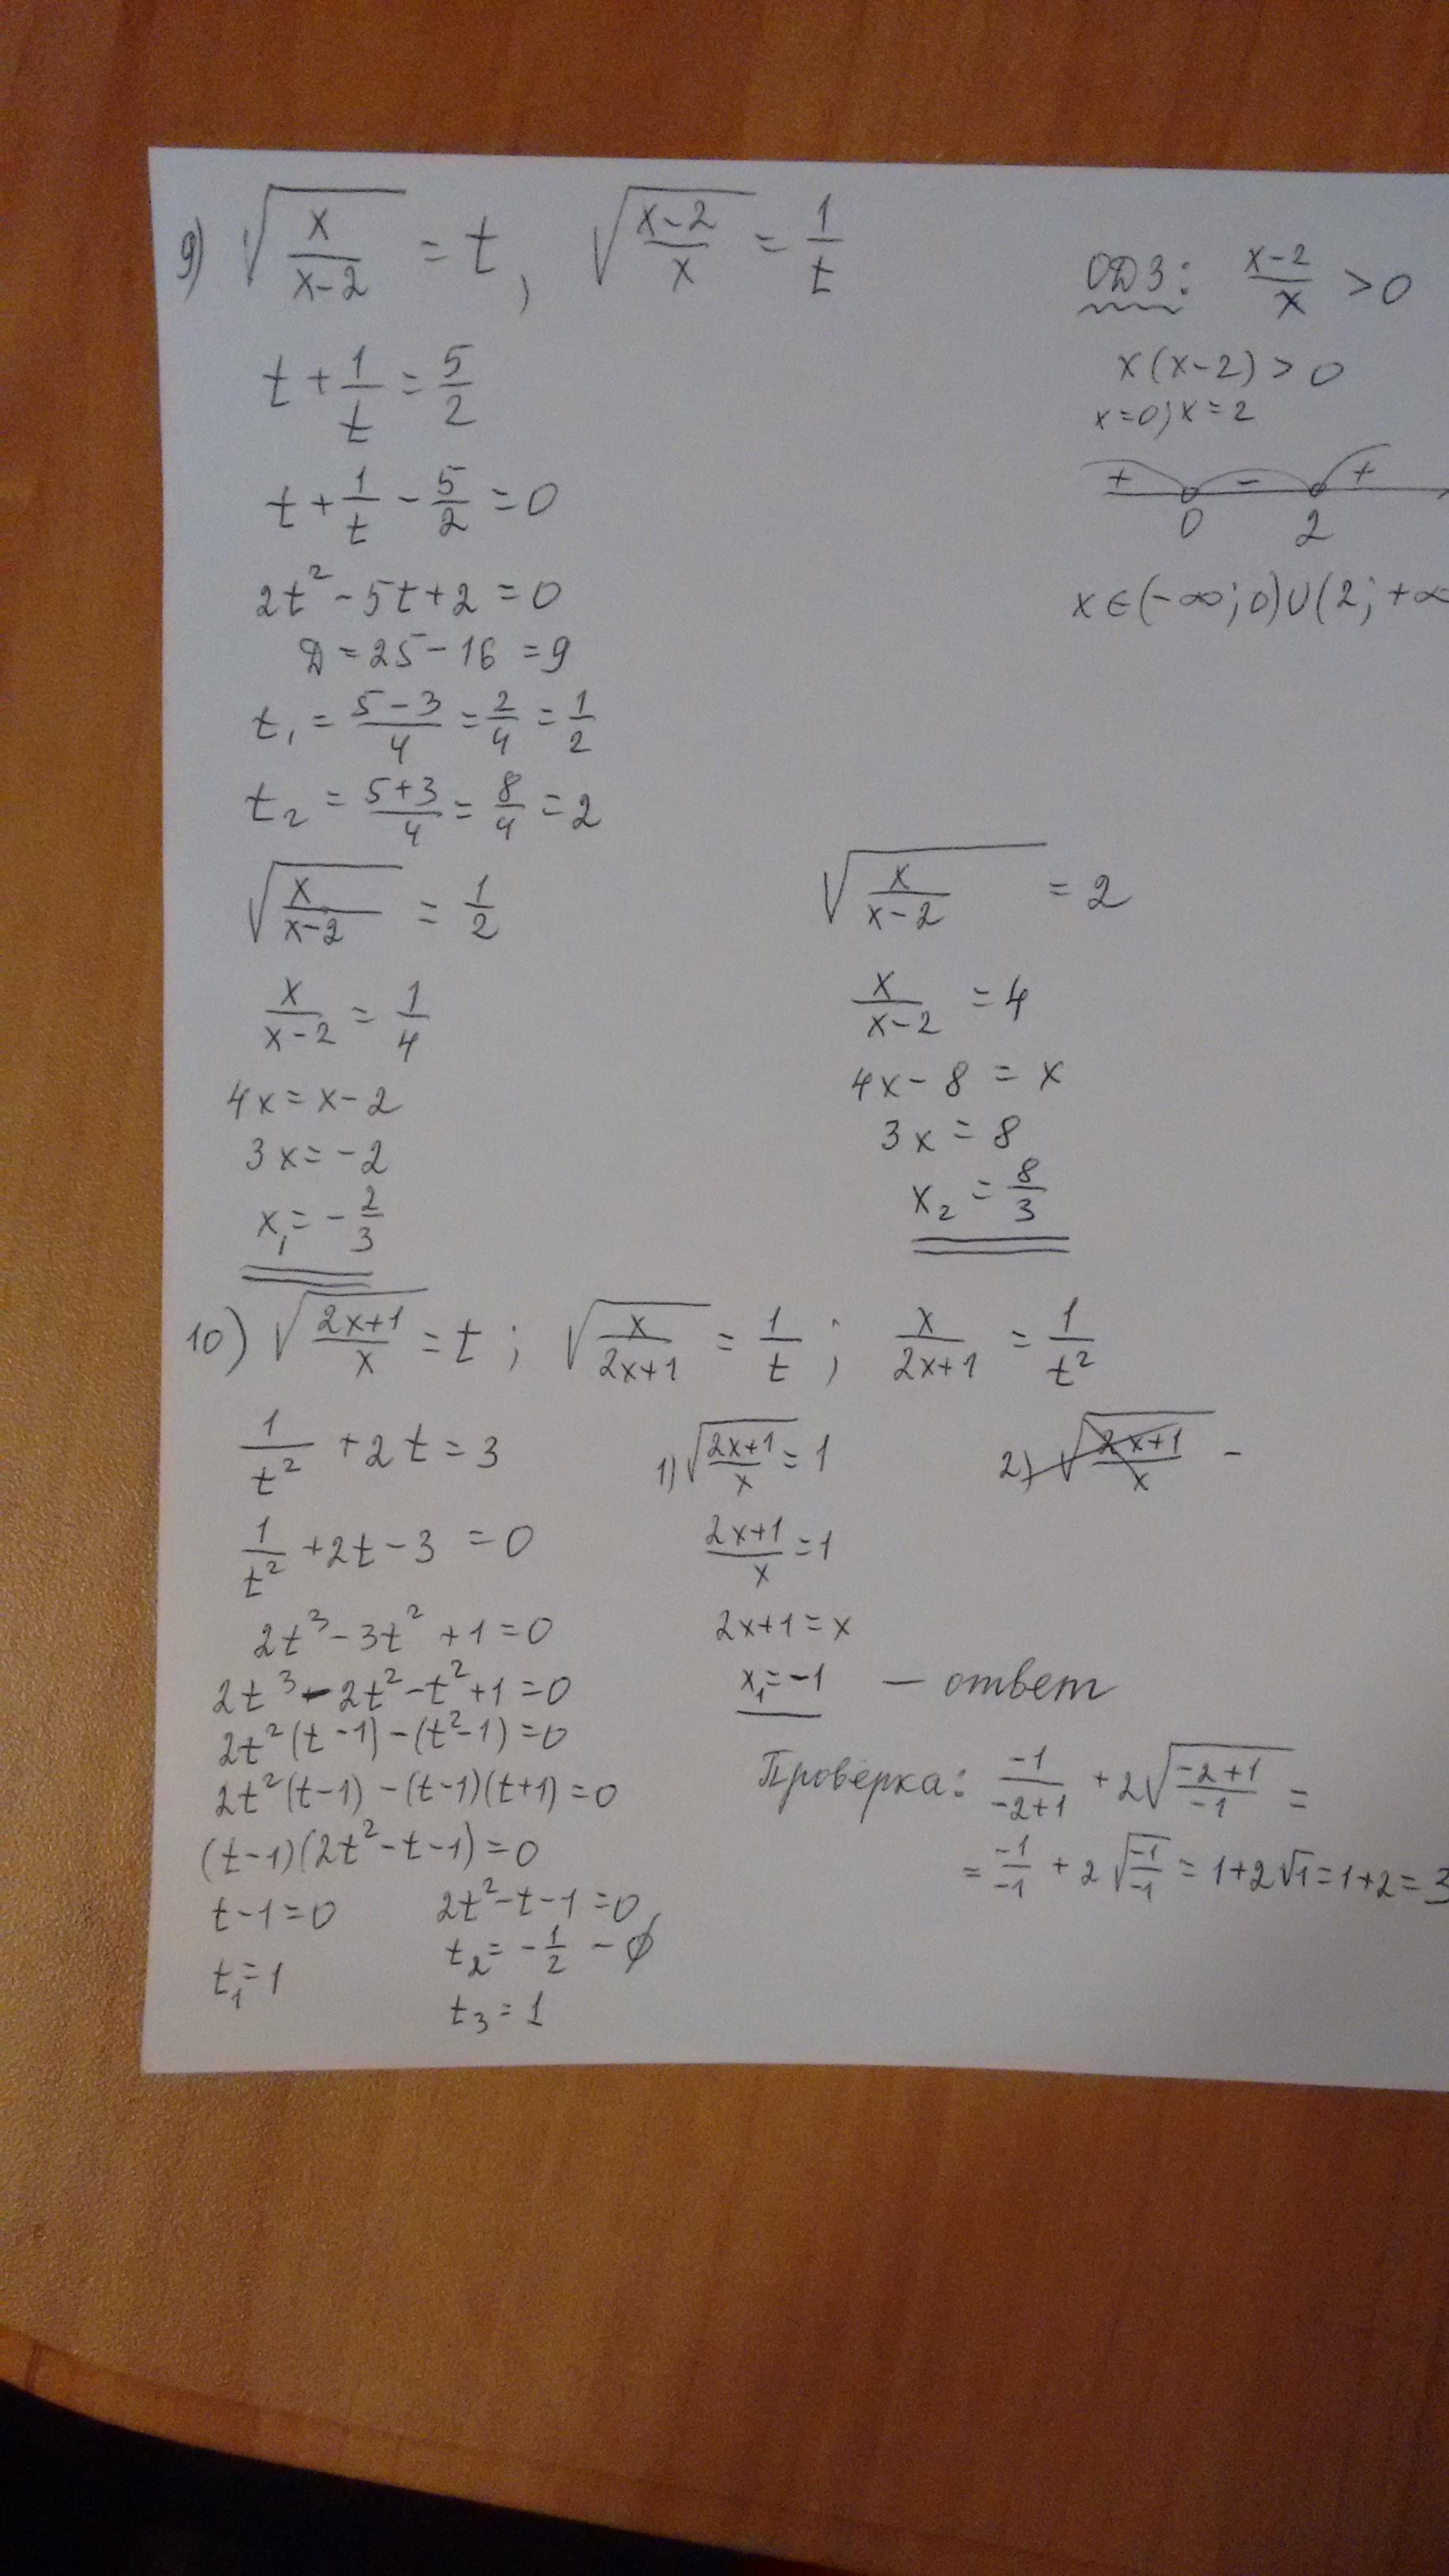 9) √(x/(x-2)) = t, √((x-2)/x) = 1/t
ОДЗ: (x-2)/x > 0
x(x-2) > 0
x=0; x=2
+ - +
0 2
x∈(-∞;0)∪(2;+∞
t + 1/t = 5/2
t + 1/t - 5/2 = 0
2t² - 5t + 2 = 0
D = 25 - 16 = 9
t₁ = (5-3)/4 = 2/4 = 1/2
t₂ = (5+3)/4 = 8/4 = 2
√(x/(x-2)) = 1/2
x/(x-2) = 1/4
4x = x - 2
3x = -2
x₁ = -2/3
√(x/(x-2)) = 2
x/(x-2) = 4
4x - 8 = x
3x = 8
x₂ = 8/3
10) √((2x+1)/x) = t; √(x/(2x+1)) = 1/t; x/(2x+1) = 1/t²
1/t² + 2t = 3
1/t² + 2t - 3 = 0
2t³ - 3t² + 1 = 0
2t³ - 2t² - t² + 1 = 0
2t²(t-1) - (t²-1) = 0
2t²(t-1) - (t-1)(t+1) = 0
(t-1)(2t² - t - 1) = 0
t - 1 = 0
t₁ = 1
2t² - t - 1 = 0
t₂ = -1/2 - ∅
t₃ = 1
1) √((2x+1)/x) = 1
(2x+1)/x = 1
2x+1 = x
x₁ = -1 — ответ
2) √((2x+1)/x) -
Проверка: -1/(-2+1) + 2√((-2+1)/-1) =
= -1/-1 + 2√(-1/-1) = 1+2√1 = 1+2 = 3